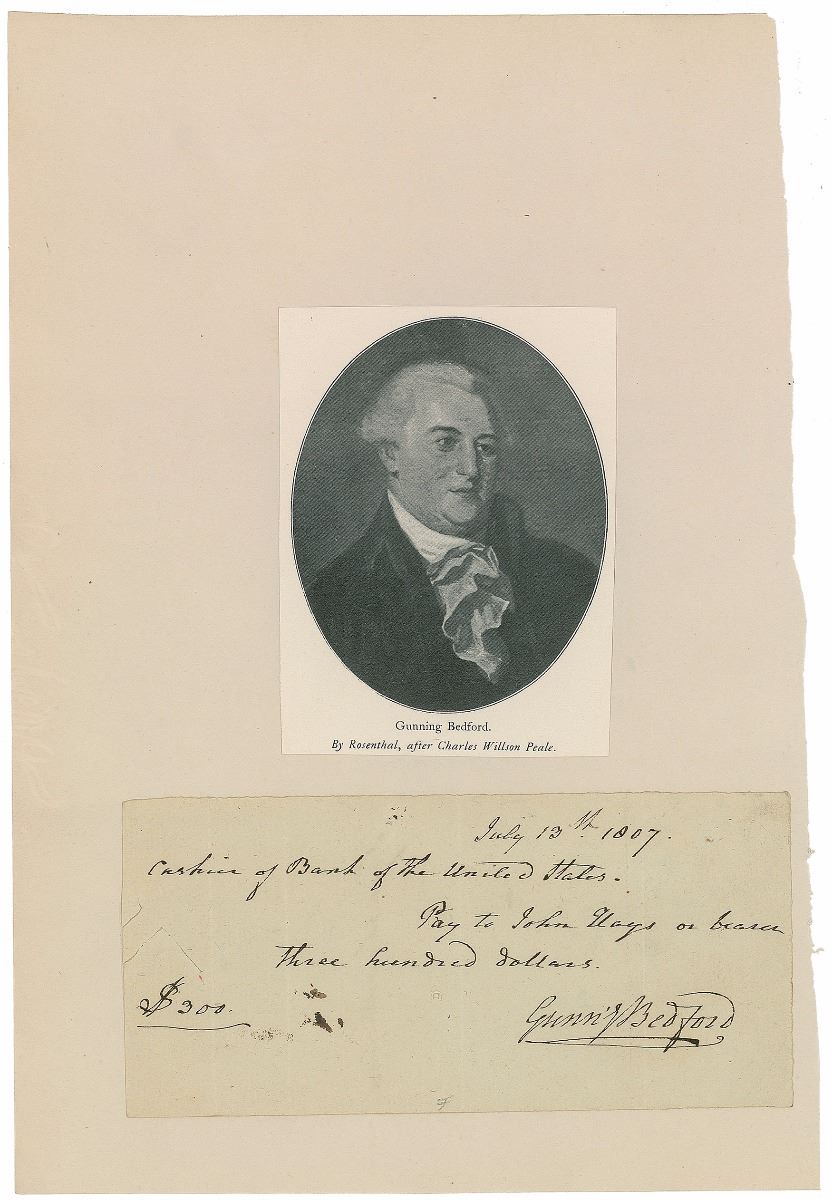 Gunning Bedford.
By Rosenthal, after Charles Willson Peale.
July 13th. 1807.
Cashier of Bank of the United States.
Pay to John Hays or bearer
three hundred dollars.
$300.
Gunng Bedford